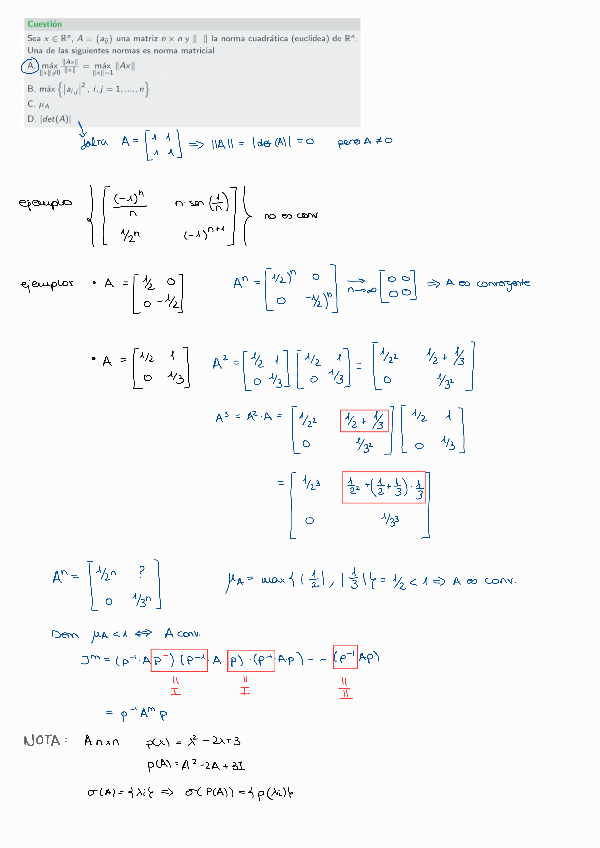 Cuestión
Sea x ∈ ℝⁿ, A = (aᵢⱼ) una matriz n × n y ‖ ‖ la norma cuadrática (euclídea) de ℝⁿ.
Una de las siguientes normas es norma matricial
A. máx_{‖x‖≠0} ‖Ax‖/‖x‖ = máx_{‖x‖=1} ‖Ax‖
B. máx {|a_{i,j}|², i, j = 1, ...., n}
C. μ_A
D. |det(A)|
falta A = [1 1; 1 1] ⇒ ‖A‖ = |det(A)| = 0 pero A ≠ 0
ejemplo {[(-1)ⁿ/n n·sen(1/n); 1/2ⁿ (-1)ⁿ⁺¹]} no es conv
ejemplos • A = [1/2 0; 0 -1/2] Aⁿ = [1/2)ⁿ 0; 0 -1/2)ⁿ] → n→∞ [0 0; 0 0] ⇒ A es convergente
• A = [1/2 1; 0 1/3] A² = [1/2 1; 0 1/3] [1/2 1; 0 1/3] = [1/2² 1/2 + 1/3; 0 1/3²]
A³ = A²·A = [1/2² 1/2 + 1/3; 0 1/3²] [1/2 1; 0 1/3]
= [1/2³ 1/2² + (1/2 + 1/3)·1/3; 0 1/3³]
Aⁿ = [1/2ⁿ ?; 0 1/3ⁿ] μ_A = max{|1/2|, |1/3|} = 1/2 < 1 ⇒ A es conv.
Dem μ_A < 1 ⇔ A conv.
Jᵐ = (p⁻¹·A p⁻) (p⁻¹·A p)·(p⁻¹ Ap) - - (p⁻¹ Ap)
= I = I = I
= p⁻¹ Aᵐ p
NOTA: A n×n p(x) = x² - 2x + 3
p(A) = A² - 2A + 3I
σ(A) = {λi} ⇒ σ(P(A)) = {p(λi)}